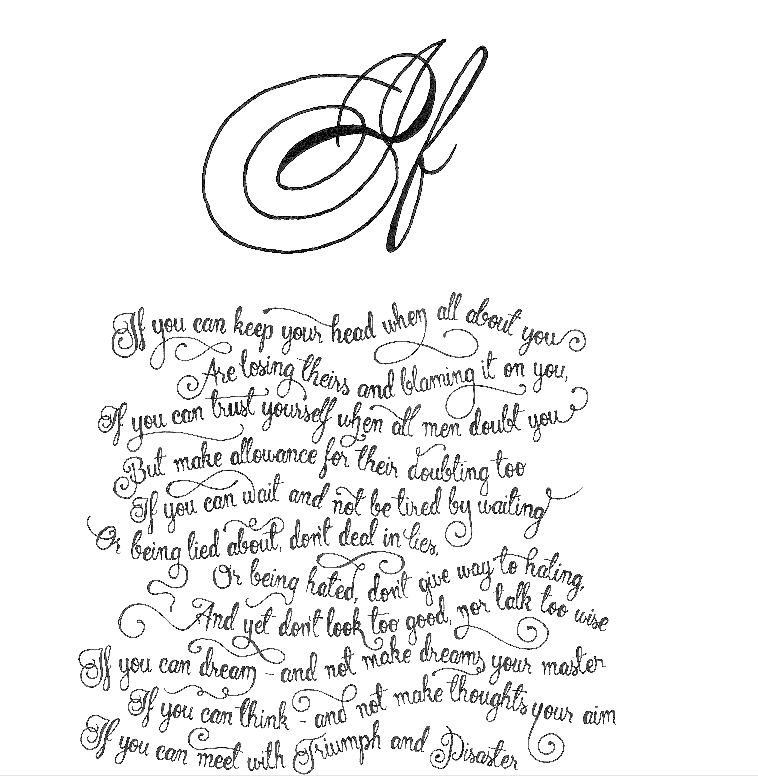 If
If you can keep your head when all about you
Are losing theirs and blaming it on you,
If you can trust yourself when all men doubt you
But make allowance for their doubting too
If you can wait and not be tired by waiting
Or being lied about, don't deal in lies,
Or being hated, don't give way to hating,
And yet don't look too good, nor talk too wise
If you can dream - and not make dreams your master
If you can think - and not make thoughts your aim
If you can meet with Triumph and Disaster